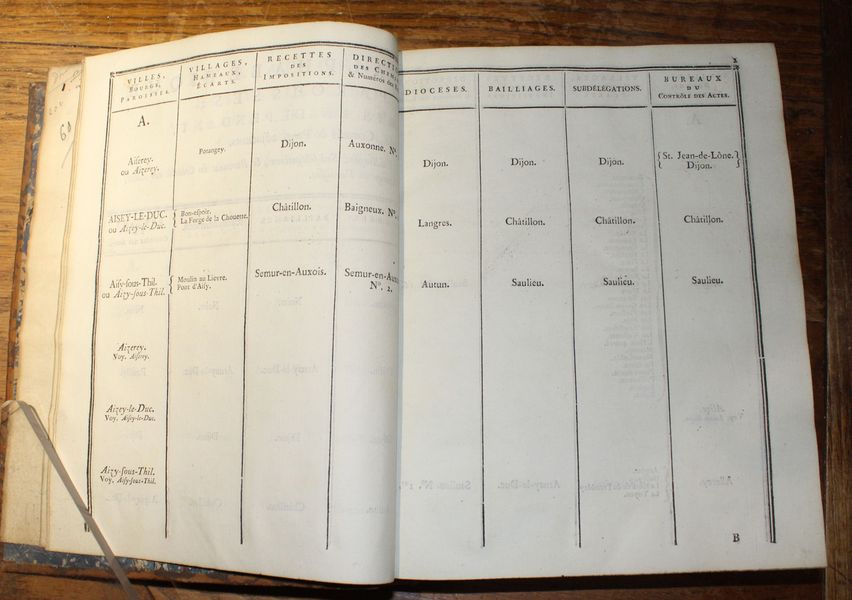 VILLES,
BOURGS,
PAROISSES.
VILLAGES,
HAMEAUX,
ÉCARTS.
RECETTES
DES
IMPOSITIONS.
DIRECTIO
DES CHEM
& Numéros des
DIOCESES.
BAILLIAGES.
SUBDÉLÉGATIONS.
BUREAUX
DU
CONTRÔLE DES ACTES.
A.
Aiſerey.
ou Aizerey.
Potangey.
Dijon.
Auxonne, Nº.
Dijon.
Dijon.
Dijon.
St. Jean-de-Lône.
Dijon.
AISEY-LE-DUC.
ou Aizey-le-Duc.
Bon-eſpoir.
La Forge de la Chouette.
Châtillon.
Baigneux, Nº.
Langres.
Châtillon.
Châtillon.
Châtillon.
Aiſy-ſous-Thil.
ou Aizy-ſous-Thil.
Moulin au Lievre.
Pont d'Aiſy.
Semur-en-Auxois.
Semur-en-Aux
Nº. 2.
Autun.
Saulieu.
Saulieu.
Saulieu.
Aizerey.
Voy. Aiſerey.
Aizey-le-Duc.
Voy. Aiſey-le-Duc.
Aizy-ſous-Thil.
Voy. Aiſy-ſous-Thil.
B